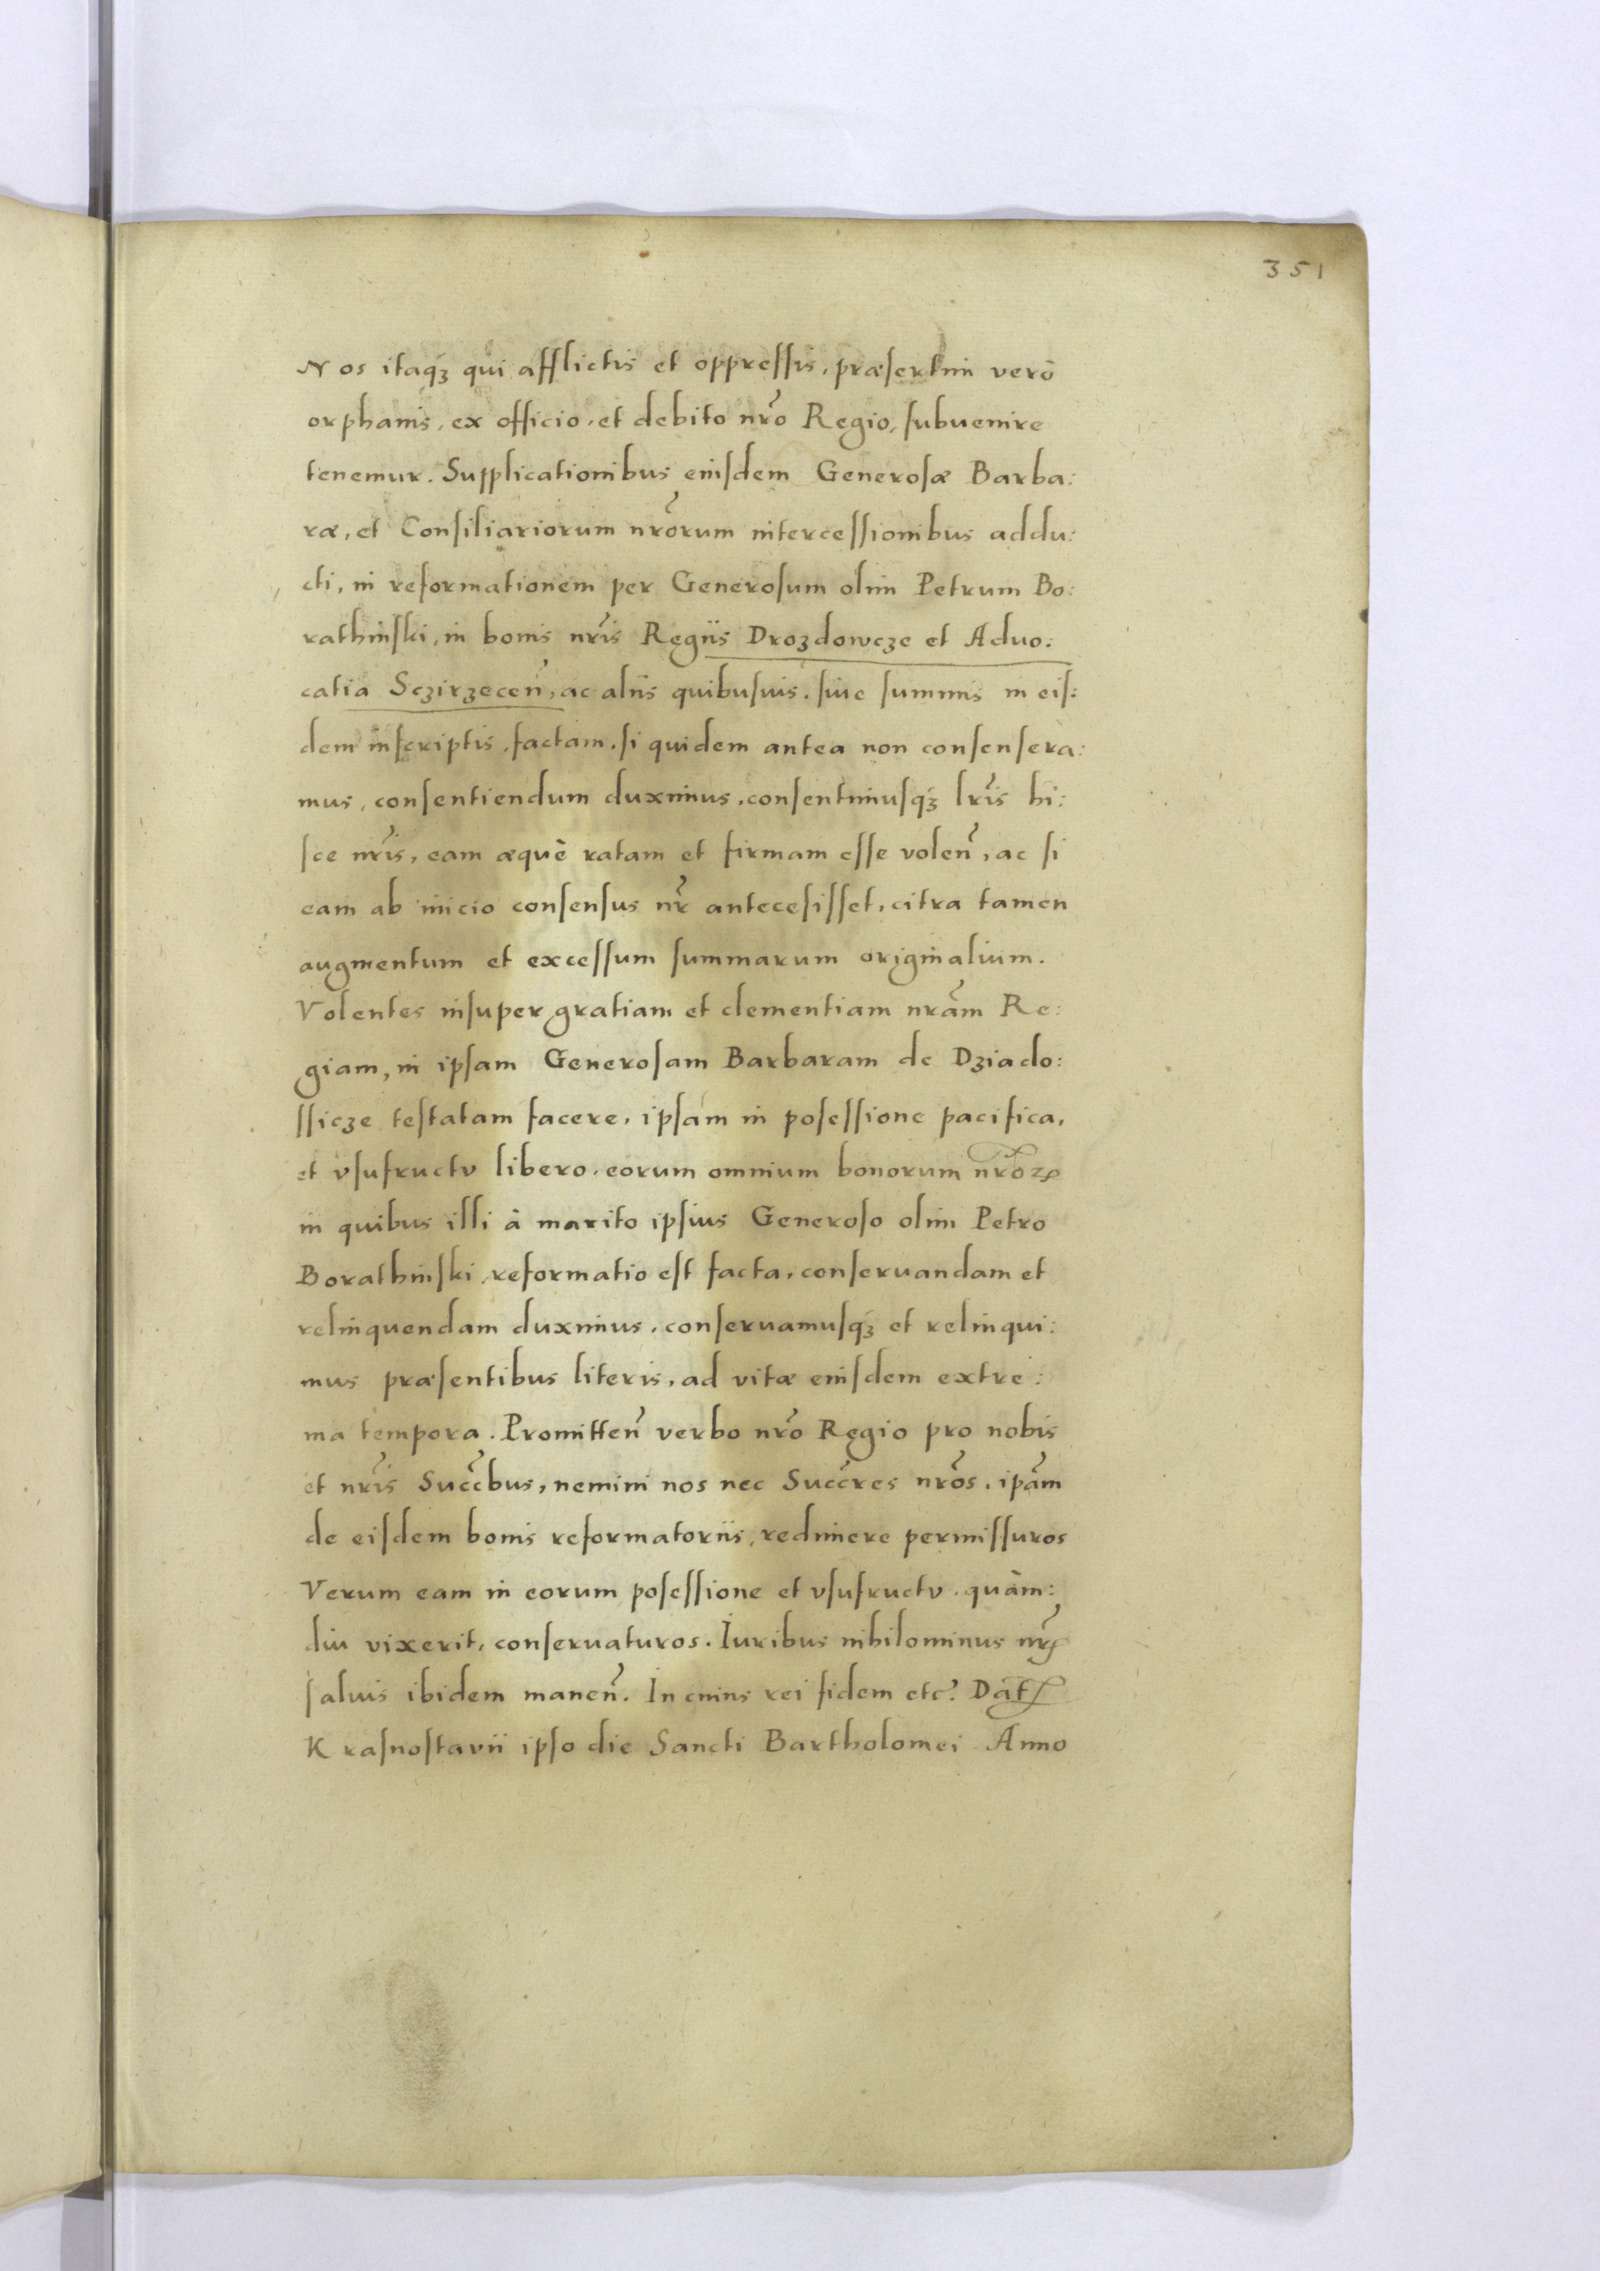 351
Nos itaq́ꝫ qui afflictis et oppressis, præsertim verò
orphanis, ex officio, et debito nr̃o Regio, subuenire
tenemur. Supplicationibus eiusdem Generosæ Barba:
ræ, et Consiliariorum nr̃orum intercessionibus addu:
cti, in reformationem per Generosum olim Petrum Bo:
rathinski, in bonis nr̃is Regiis Drozdowcze et Aduo:
catia Sczirzecen̄, ac aliis quibusuis, siue summis in eis:
dem inscriptis, factam, si quidem antea non consensera:
mus, consentiendum duximus, consentimusq́ꝫ lr̃is hi:
sce nr̃is, eam æquè ratam et firmam esse volen̄, ac si
eam ab inicio consensus nr̃ antecesisset, citra tamen
augmentum et excessum summarum originalium.
Volentes insuper gratiam et clementiam nr̃am Re:
giam, in ipsam Generosam Barbaram de Dziado:
ssicze testatam facere, ipsam in posessione pacifica,
et vsufructv libero, eorum omnium bonorum nr̃oꝝ
in quibus illi à marito ipsius Generoso olim Petro
Borathinski reformatio est facta, conseruandam et
relinquendam duximus, conseruamusq́ꝫ et relinqui:
mus præsentibus literis, ad vitæ eiusdem extre:
ma tempora. Promitten̄ verbo nr̃o Regio pro nobis
et nr̃is Succc̃bus, nemini nos nec Succc̃res nr̃os, ip̃am
de eisdem bonis reformatoriis, redimere permissuros
Verum eam in eorum posessione et vsufructv, quàm:
diu vixerit, conseruaturos. Iuribus nihilominus nr̃is
saluis ibidem manen̄. In cuius rei fidem etc̃. Dat̃
Krasnostavii ipso die Sancti Bartholomei Anno